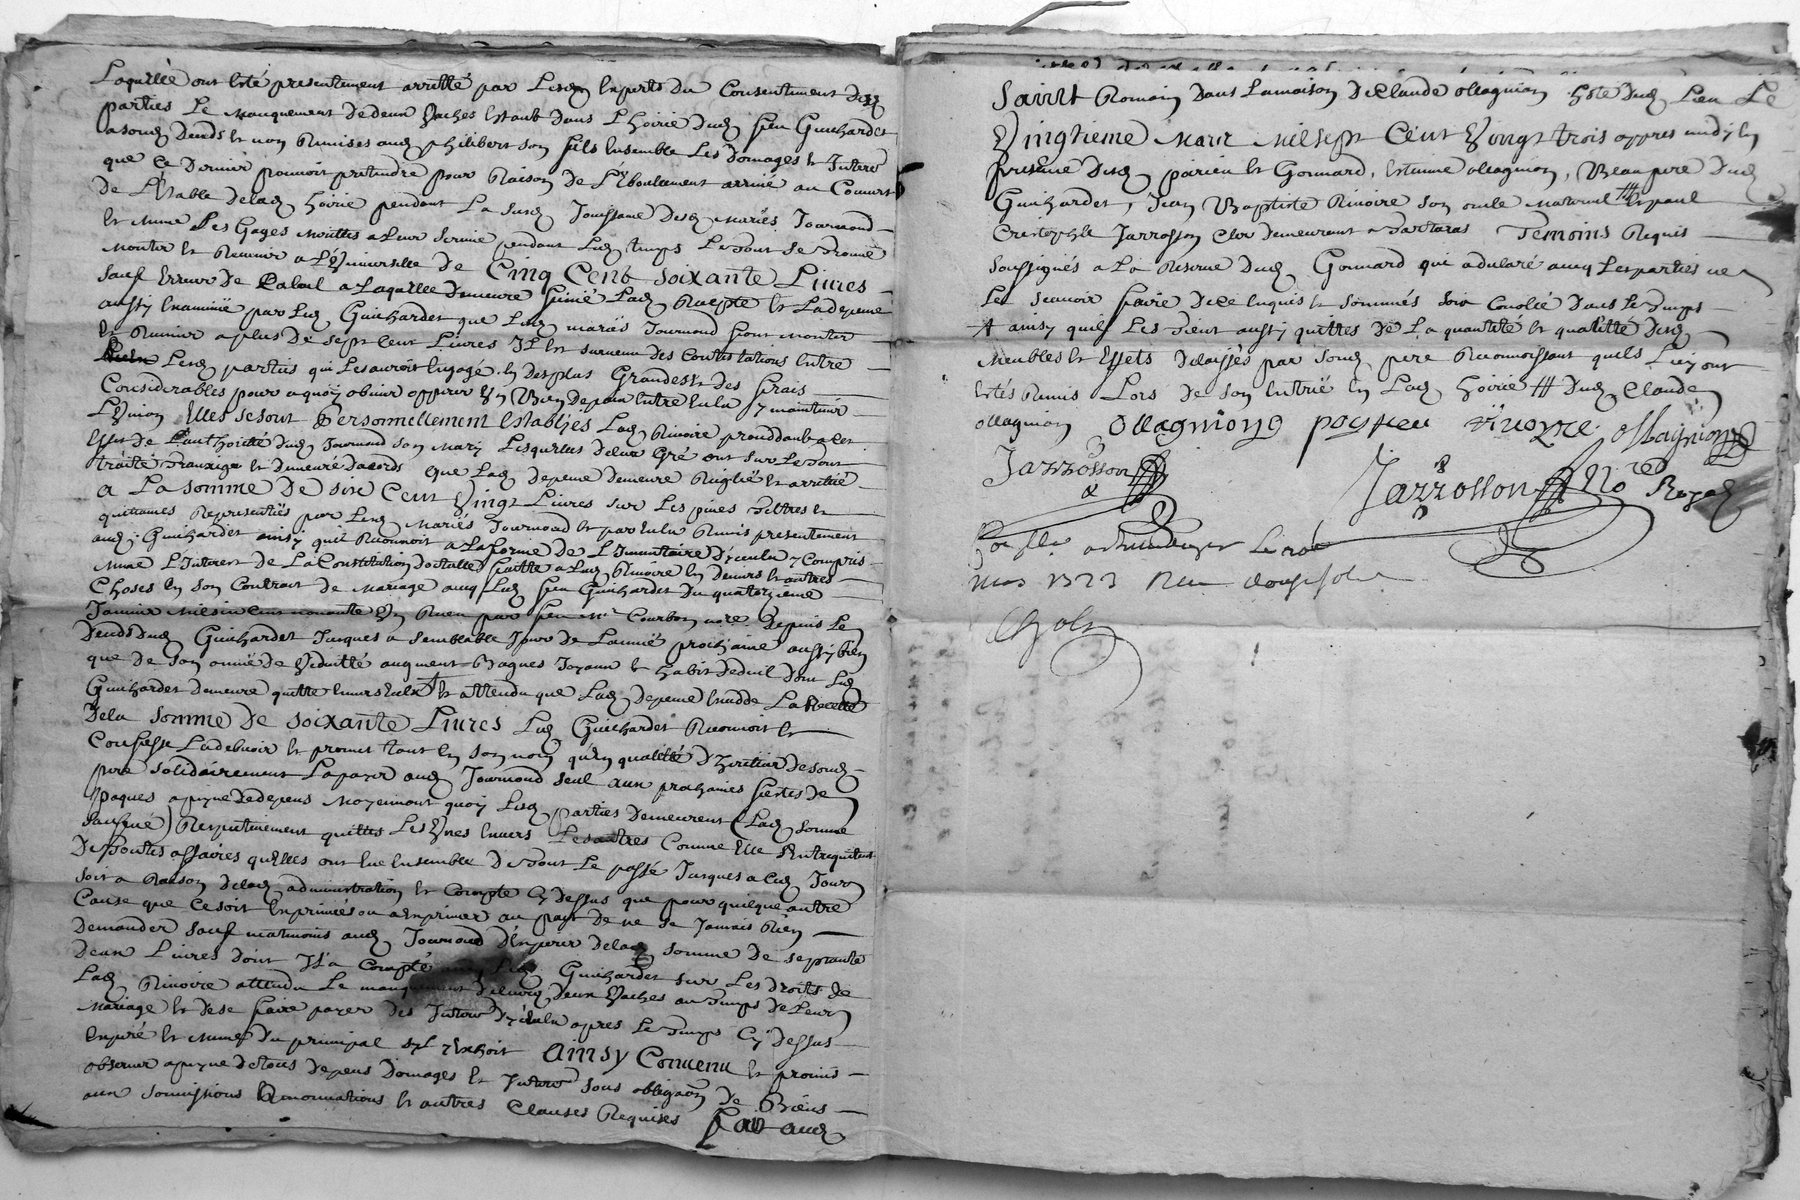 Laquelle ont esté presentement arretté par Lesd Experts du Consentement desd
parties Le manquement de deux Vaches Estant dans L hoirie dud feu Guichardet
a son deceds et non Remises aud philibert son fils Ensemble Les Domages et Interest
que Ce Dernier pouvoit pretendre pour Raison de L'Eboulement arrivé au Couvert
de L'Etable de lad hoirie pendant La susd Jouissance desd Mariés Journond
et mme Les Gages au Leur service pendant Led temps Le tout se trouve
monter et Revenir a L'Universelle de Cinq Cent soixante Livres
sauf Erreur de Calcul a Laquelle demeure finie Lad Recepte et La depence
aussy Examinée par Led Guichardet que Lesd mariés Journond font monter
et Revenir a plus de sept Cent Livres Il Est survenu des Contestations Entre
Lesd parties qui Les auroit Engagé En des plus Grandes et des frais
Considerables pour a quoy obvier opprir En Bien de paix Entre Eulx y maintenir
L'Union Elles se sont Personnellement Establies Lad Rivoire proceddant a cet
Effet de L'authorité dud Journond son Mary Lesquelles de leur Gré ont sur Le tout
traitté Transigé et demeuré dacords que Lad depence demeure Reiglée et arretée
a La somme De six Cent Vingt Livres sur Les pieces tiltres et
quittances Representées par Lesd Mariés Journond et par Eulx Remis presentement
aud Guichardet ainsy quil Reconnoit a La forme de L'Inventaire D'yceulx y Compris
mme L'Interest de La Constitution dottalle faitte a Lad Rivoire En deniers et autres
Choses En son Contract de Mariage avec Led feu Guichardet du quatorzieme
Janvier mil six Cens nonante Un Receu par feu Mr Courbon nore Depuis Le
Deceds dud Guichardet Jusques a semblable Jour de L'année prochaine aussy bien
que de son année de Viduitté augment Bagues Joyaux et habit de deuil dont Led
Guichardet demeure quitte Envers Eulx et attendu que Lad depence Excedde La Recette
De la somme De soixante Livres Led Guichardet Reconnoit et
Confesse La debvoir et promet tant En son nom qu'En qualitté D'heritier de sond
pere solidairement La payer aud Journond seul aux prochaines festes de
Paques a peyne de depens Moyennant quoy Lesd Parties demeurent (Lad somme
payée) Respectivement quittes Les Unes Envers Les autres Comme Elle s'Entrequittent
De toutes affaires quelles ont Eue Ensemble De tout Le passé Jusques a Ced Jour
soit a Raison de lad administration et Compte Cy dessus que pour quelque autre
Cause que Ce soit Exprimés ou a Exprimer au pact de ne se Jamais Rien
demander sauf neatmoins aud Journond D'Exiger de lad somme de septante
deux Livres dont Il a Compté aud Guichardet sur Les droits de
Lad Rivoire attendu Le manquement deux Vaches au temps de Leur
Mariage et de se faire payer des Interest D'yceulx apres Le temps Cy dessus
Expiré et mme du principal syl y Exhoit Ainsy Convenu et promis
observer a peyne de tous depens Domages et Interest sous obligaon de Biens
aux soumissions Renonciations et autres Clauses Requises Fait aud
Saint Romain dans La maison De Claude ollagnion hoste dud Lieu Le
Vingtieme Mars Mil sept Cent Vingt trois appres midy En
presence desd parieu et Gonnard, Estienne ollagnion, Beaupere dud
Guichardet, Jean Baptiste Rivoire son oncle Maternel # Et paul
Crestophle Jarrosson Clerc demeurant a Tartaras Temoins Requis
soussignés a La Reserve dud Gonnard qui a declaré avec Les parties ne
Le scavoir faire de ce Enquis et sommés soit Conolée dans Le temps
+ ainsy quil Les tient aussy quittes de La quantitté et qualitté desd
Meubles et Effets delaissés par sond pere Reconnoissant quels Luy ont
Estés Remis Lors de son Entrée En Lad hoirie # dud Claude
ollagnion Ollagniong poyieu riuoyre ollagnion
Jarrosson Jarrosson No.re Royal
Le
mars 1723 Receu
Chol